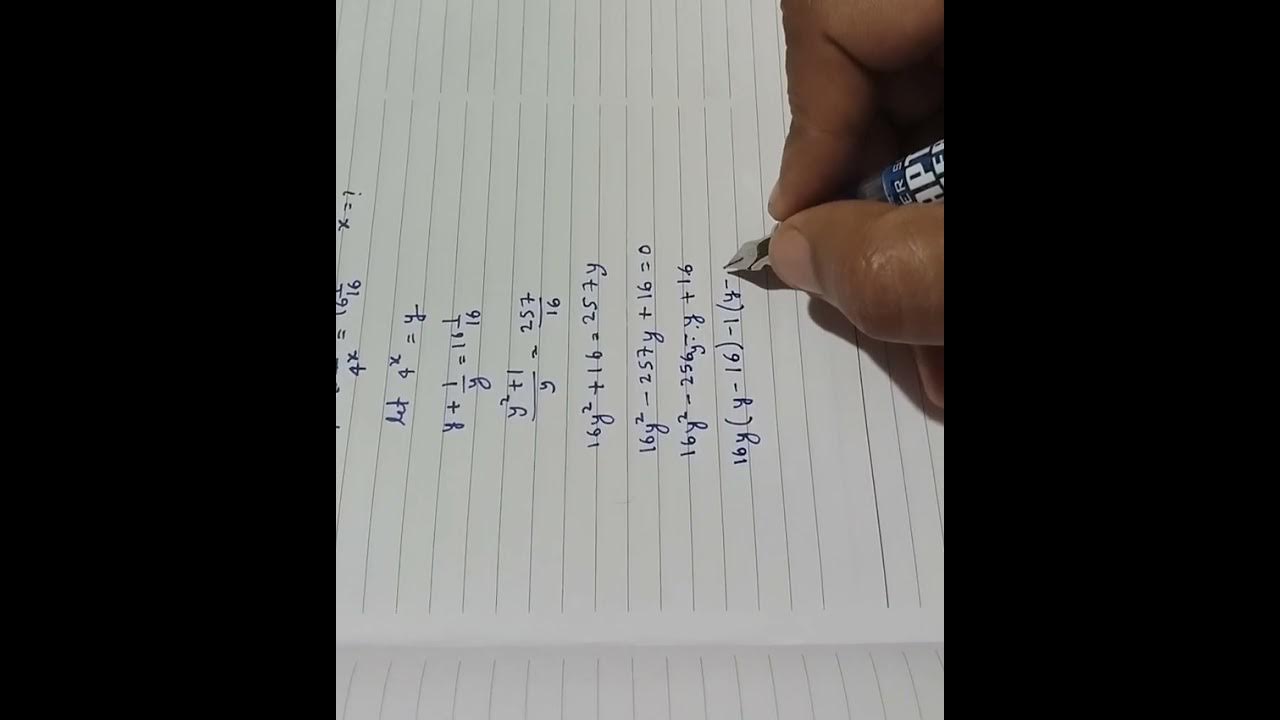 = 16 1/16 x = ?
4^x
let 4^x = y
y + 1/y = 16 1/16
y² + 1 / y = 257/16
16y² + 16 = 257y
16y² - 257y + 16 = 0
16y² - 256y - y + 16
16y(y - 16) - 1(y -